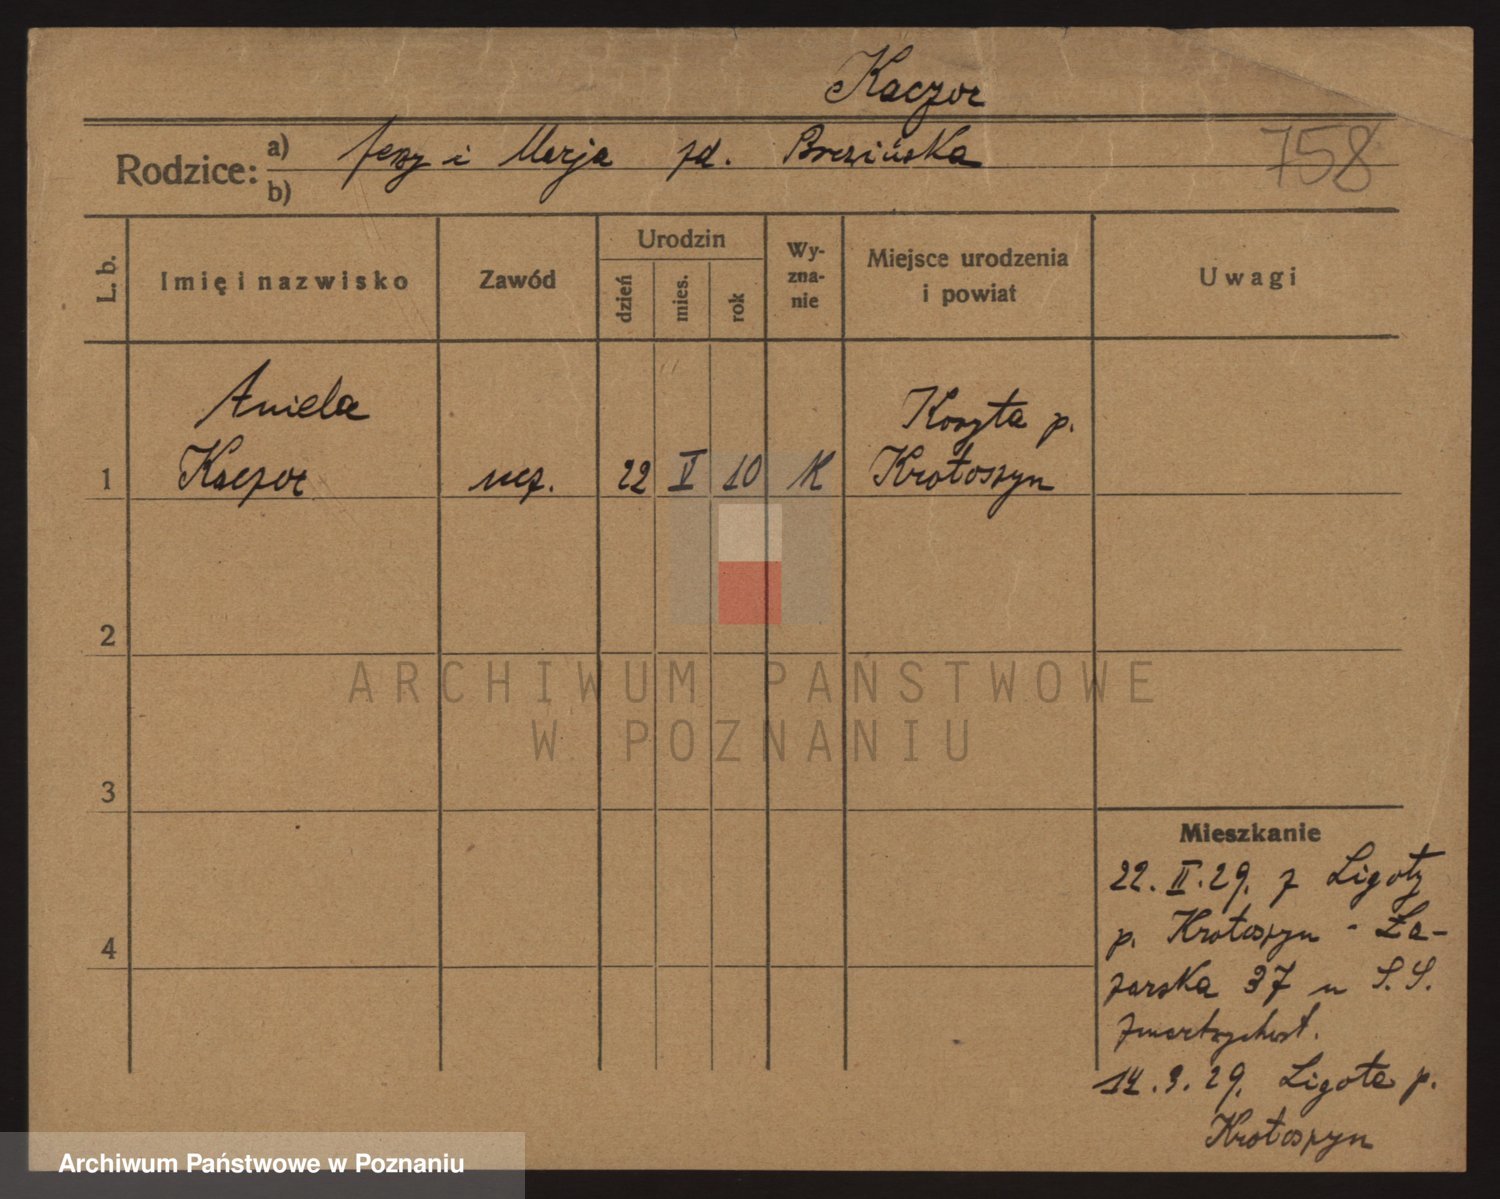 Kaczor
Rodzice: a) Jerzy i Marja zd. Brezińska
b)
758
L. b.
Imię i nazwisko
Zawód
Urodzin
dzień
mies.
rok
Wy-
zna-
nie
Miejsce urodzenia
i powiat
Uwagi
Aniela
Kaczor
1
ucz.
22 V 10 K
Koryta p.
Krotoszyn
2
3
4
ARCHIWUM PAŃSTWOWE
W POZNANIU
Mieszkanie
22. II. 29. z Ligoty
p. Krotoszyn - Ła-
zarska 37 u S. S.
Zmartwychwst.
14. 3. 29. Ligota p.
Krotoszyn
Archiwum Państwowe w Poznaniu